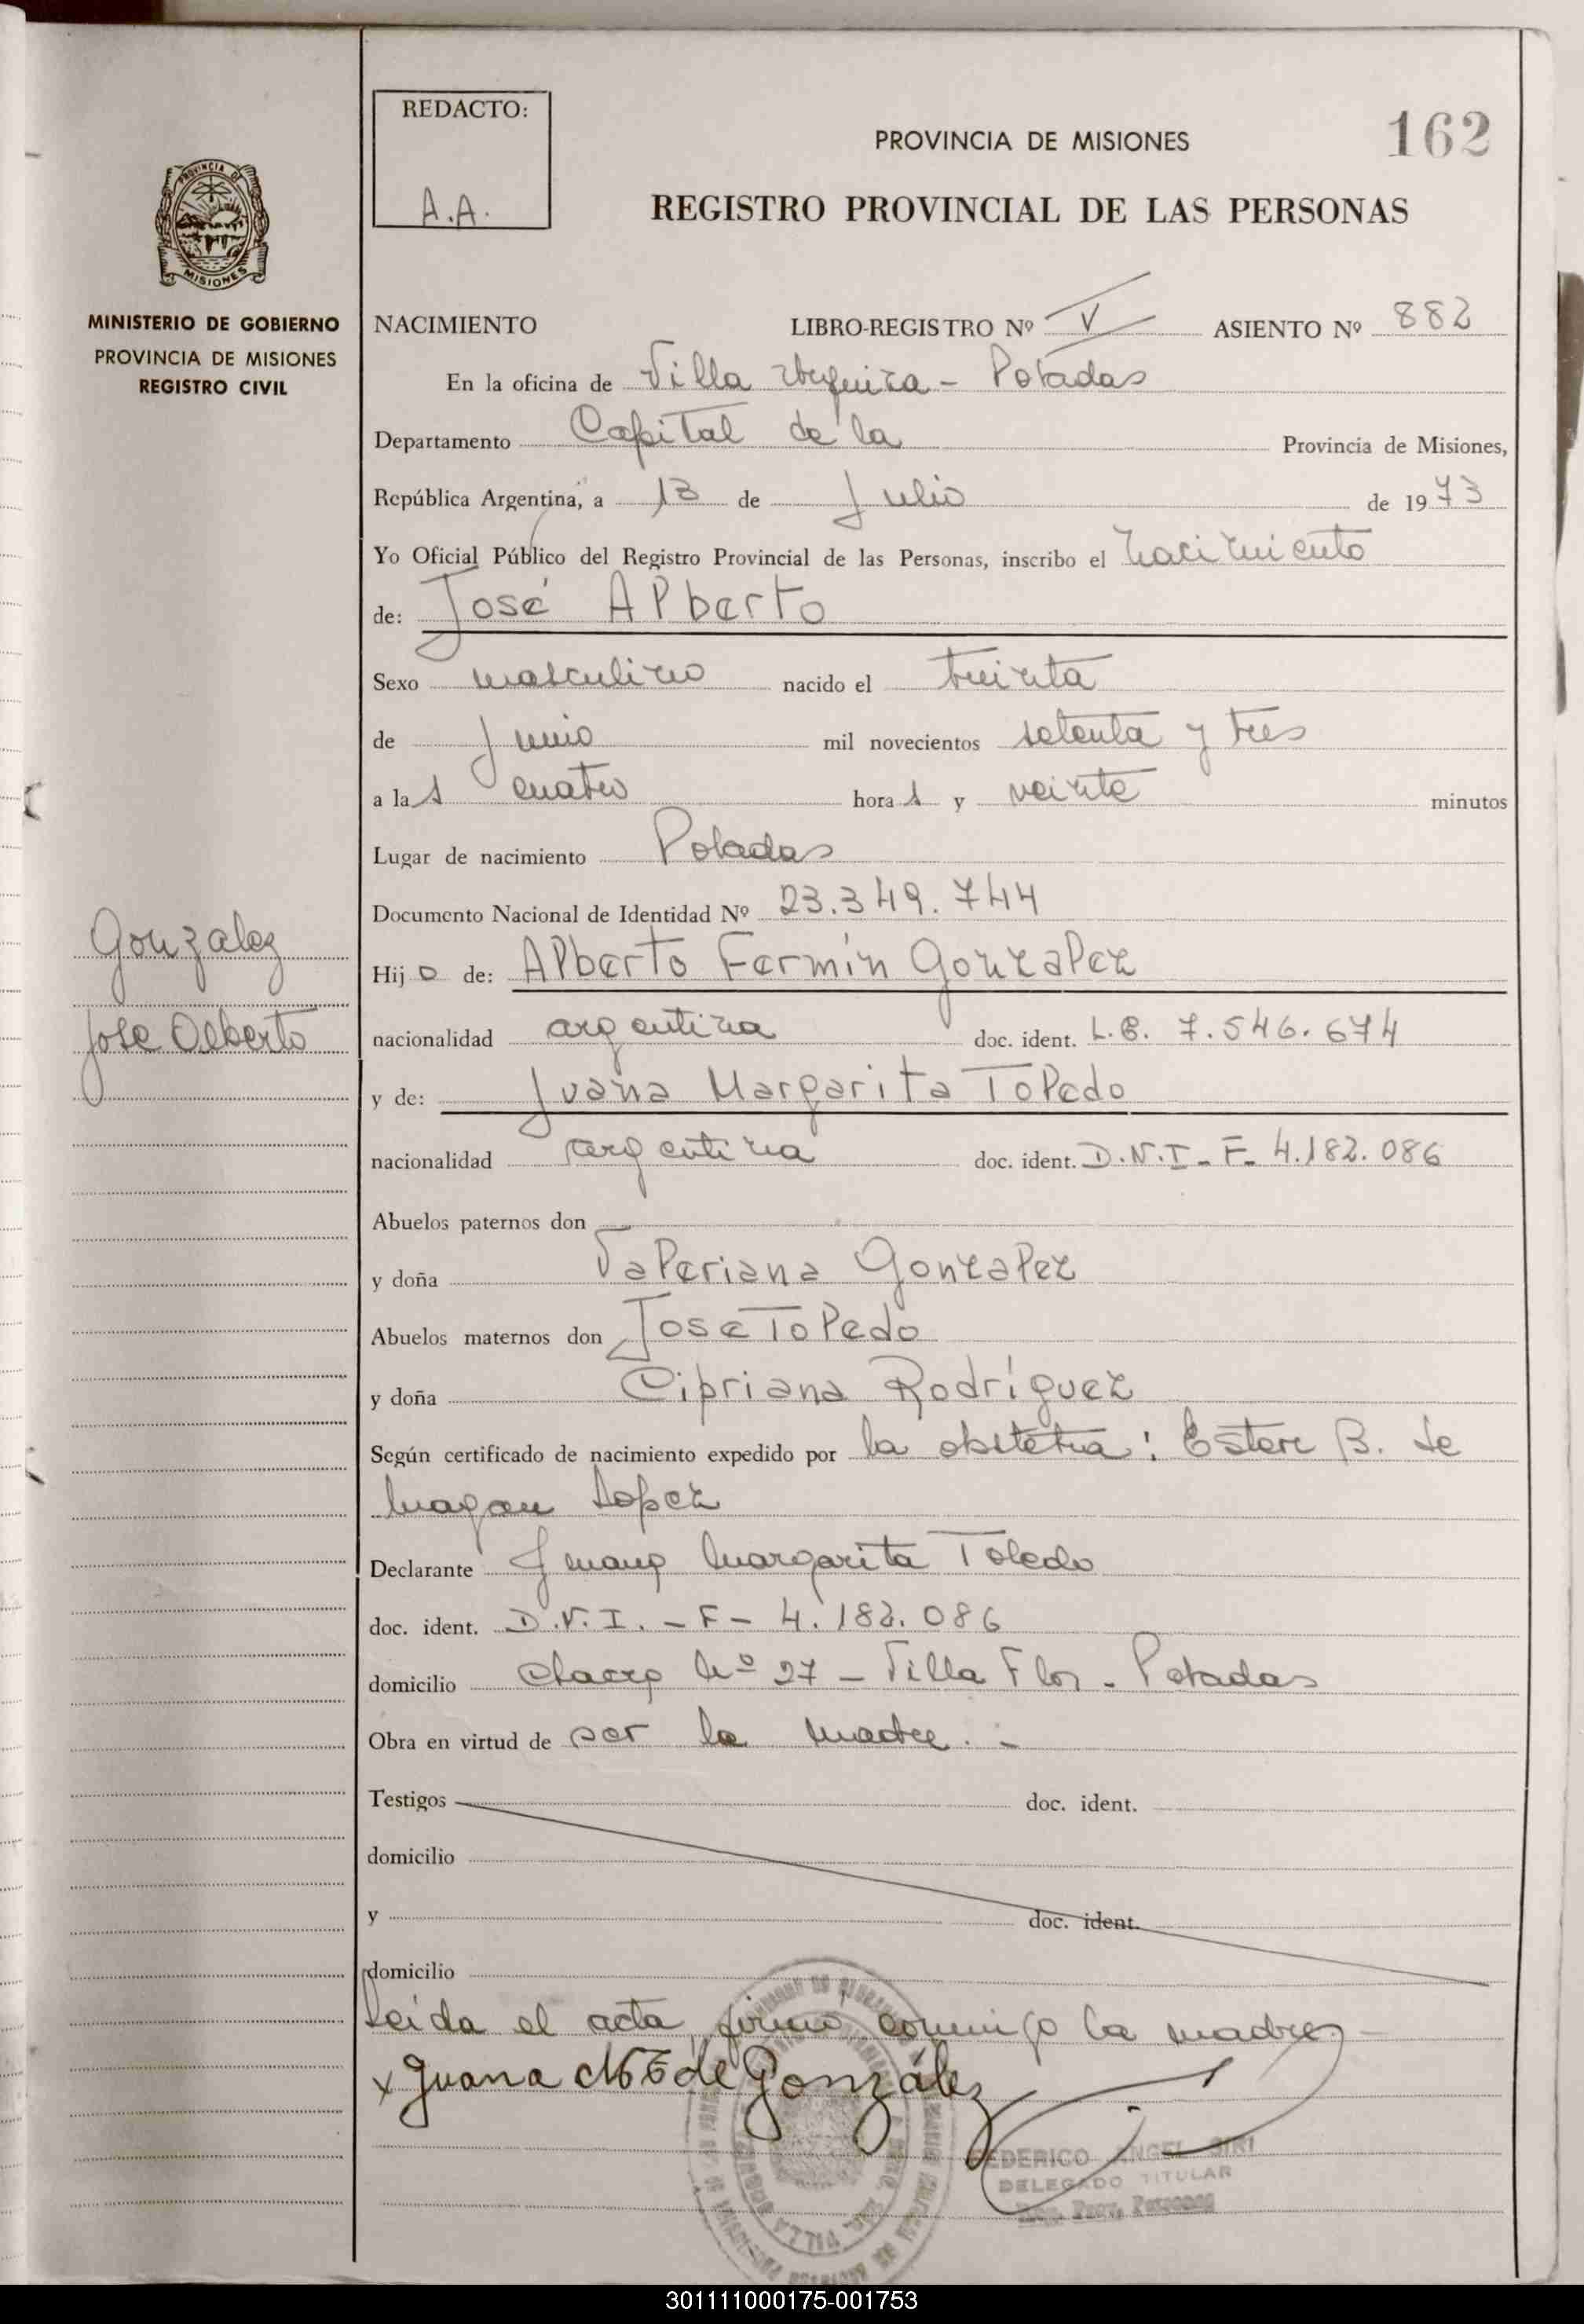 REDACTO:
A.A.
PROVINCIA DE MISIONES
162
REGISTRO PROVINCIAL DE LAS PERSONAS
PROVINCIA DE
MISIONES
MINISTERIO DE GOBIERNO
PROVINCIA DE MISIONES
REGISTRO CIVIL
NACIMIENTO LIBRO-REGISTRO Nº V ASIENTO Nº 882
En la oficina de Villa Urquiza - Posadas
Departamento Capital de la Provincia de Misiones,
República Argentina, a 13 de Julio de 1973
Yo Oficial Público del Registro Provincial de las Personas, inscribo el nacimiento
de: José Alberto
Sexo masculino nacido el treinta
de Junio mil novecientos setenta y tres
a las cuatro horas y veinte minutos
Lugar de nacimiento Posadas
Documento Nacional de Identidad Nº 23.349.744
Gonzalez
Jose Alberto
Hijo de: Alberto Fermín Gonzalez
nacionalidad argentina doc. ident. L.E. 7.546.674
y de: Juana Margarita Toledo
nacionalidad argentina doc. ident. D.N.I - F- 4.182.086
Abuelos paternos don
y doña Valeriana Gonzalez
Abuelos maternos don Jose Toledo
y doña Cipriana Rodríguez
Según certificado de nacimiento expedido por la obstetra: Ester B. de
Lopez
Declarante Juana Margarita Toledo
doc. ident. D.N.I. - F - 4.182.086
domicilio Chacra Nº 27 - Villa Flor - Posadas
Obra en virtud de ser la madre. -
Testigos doc. ident.
domicilio
y doc. ident.
domicilio
Leida el acta, firma conmigo la madre -
x Juana M T de González
FEDERICO ANGEL SIRI
DELEGADO TITULAR
301111000175-001753